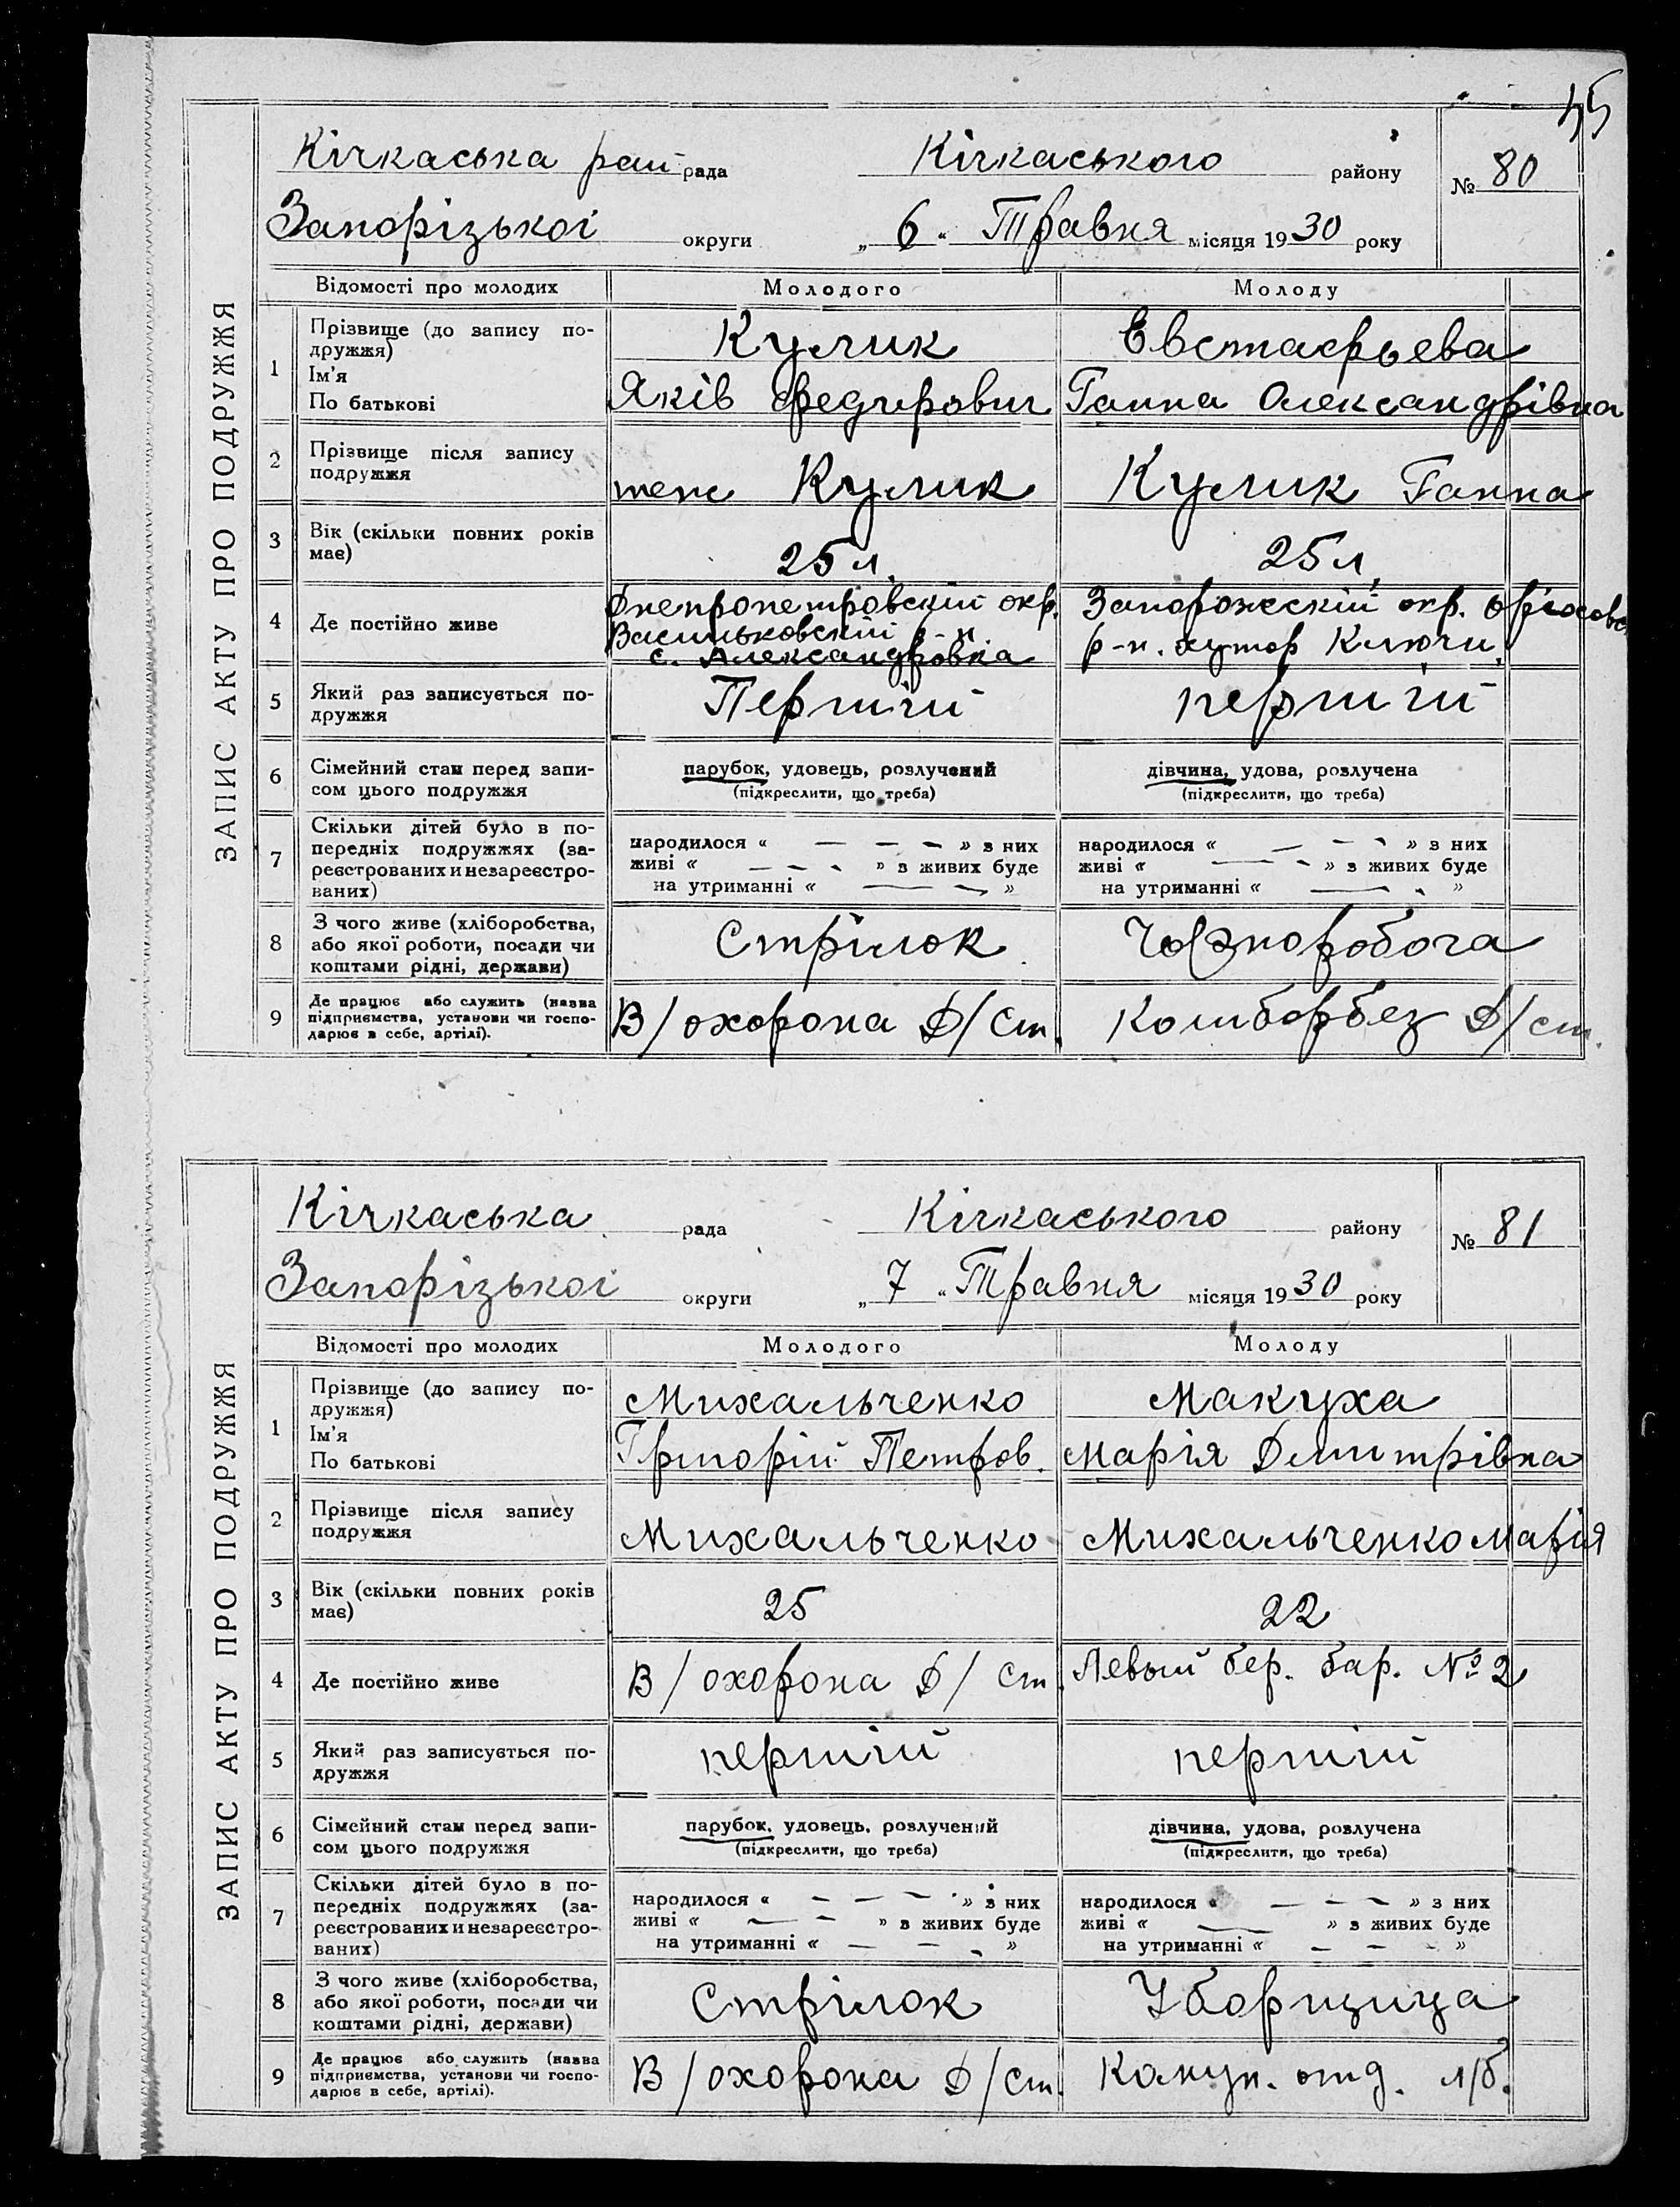 45
ЗАПИС АКТУ ПРО ПОДРУЖЖЯ
Кічкаська рай рада Кічкаського району № 80
Запорізької округи „ 6 “ Травня місяця 1930 року
Відомості про молодих Молодого Молоду
1 Прізвище (до запису подружжя) Кулик Евстафьева
Ім'я
По батькові Яків Федорович Ганна Олександрівна
2 Прізвище після запису подружжя теж Кулик Кулик Ганна
3 Вік (скільки повних років має) 25 л. 25 л.
4 Де постійно живе Днепропетровскій окр. Запорожскій окр. Оріховс
Васильковскій р-н. р-н. хутор Ключи.
с. Александровка
5 Який раз записується подружжя Перший перший
6 Сімейний стан перед записом цього подружжя парубок, удовець, розлучений дівчина, удова, розлучена
(підкреслити, що треба) (підкреслити, що треба)
7 Скільки дітей було в попередніх подружжях (зареєстрованих и незареєстрованих) народилося « — — — » з них народилося « — — — » з них
живі « — — — » з живих буде живі « — — » з живих буде
на утриманні « — — » на утриманні « — — »
8 З чого живе (хліборобства, або якої роботи, посади чи коштами рідні, держави) Стрілок Чорноробоча
9 Де працює або служить (назва підприємства, установи чи господарює в себе, артілі). В/охорона Д/Ст. Комборбез Д/ст.
ЗАПИС АКТУ ПРО ПОДРУЖЖЯ
Кічкаська рада Кічкаського району № 81
Запорізької округи „ 7 “ Травня місяця 1930 року
Відомості про молодих Молодого Молоду
1 Прізвище (до запису подружжя) Михальченко Макуха
Ім'я
По батькові Григорій Петров. Марія Дмитрівна
2 Прізвище після запису подружжя Михальченко Михальченко Марія
3 Вік (скільки повних років має) 25 22
4 Де постійно живе В/охорона Д/Ст. Левый бер. бар. № 2
5 Який раз записується подружжя перший перший
6 Сімейний стан перед записом цього подружжя парубок, удовець, розлучений дівчина, удова, розлучена
(підкреслити, що треба) (підкреслити, що треба)
7 Скільки дітей було в попередніх подружжях (зареєстрованих и незареєстрованих) народилося « — — — » з них народилося « — — — » з них
живі « — — » з живих буде живі « — » з живих буде
на утриманні « — — — » на утриманні « — — — »
8 З чого живе (хліборобства, або якої роботи, посади чи коштами рідні, держави) Стрілок Уборщица
9 Де працює або служить (назва підприємства, установи чи господарює в себе, артілі). В/охорона Д/Ст. Комун. отд. л/б.